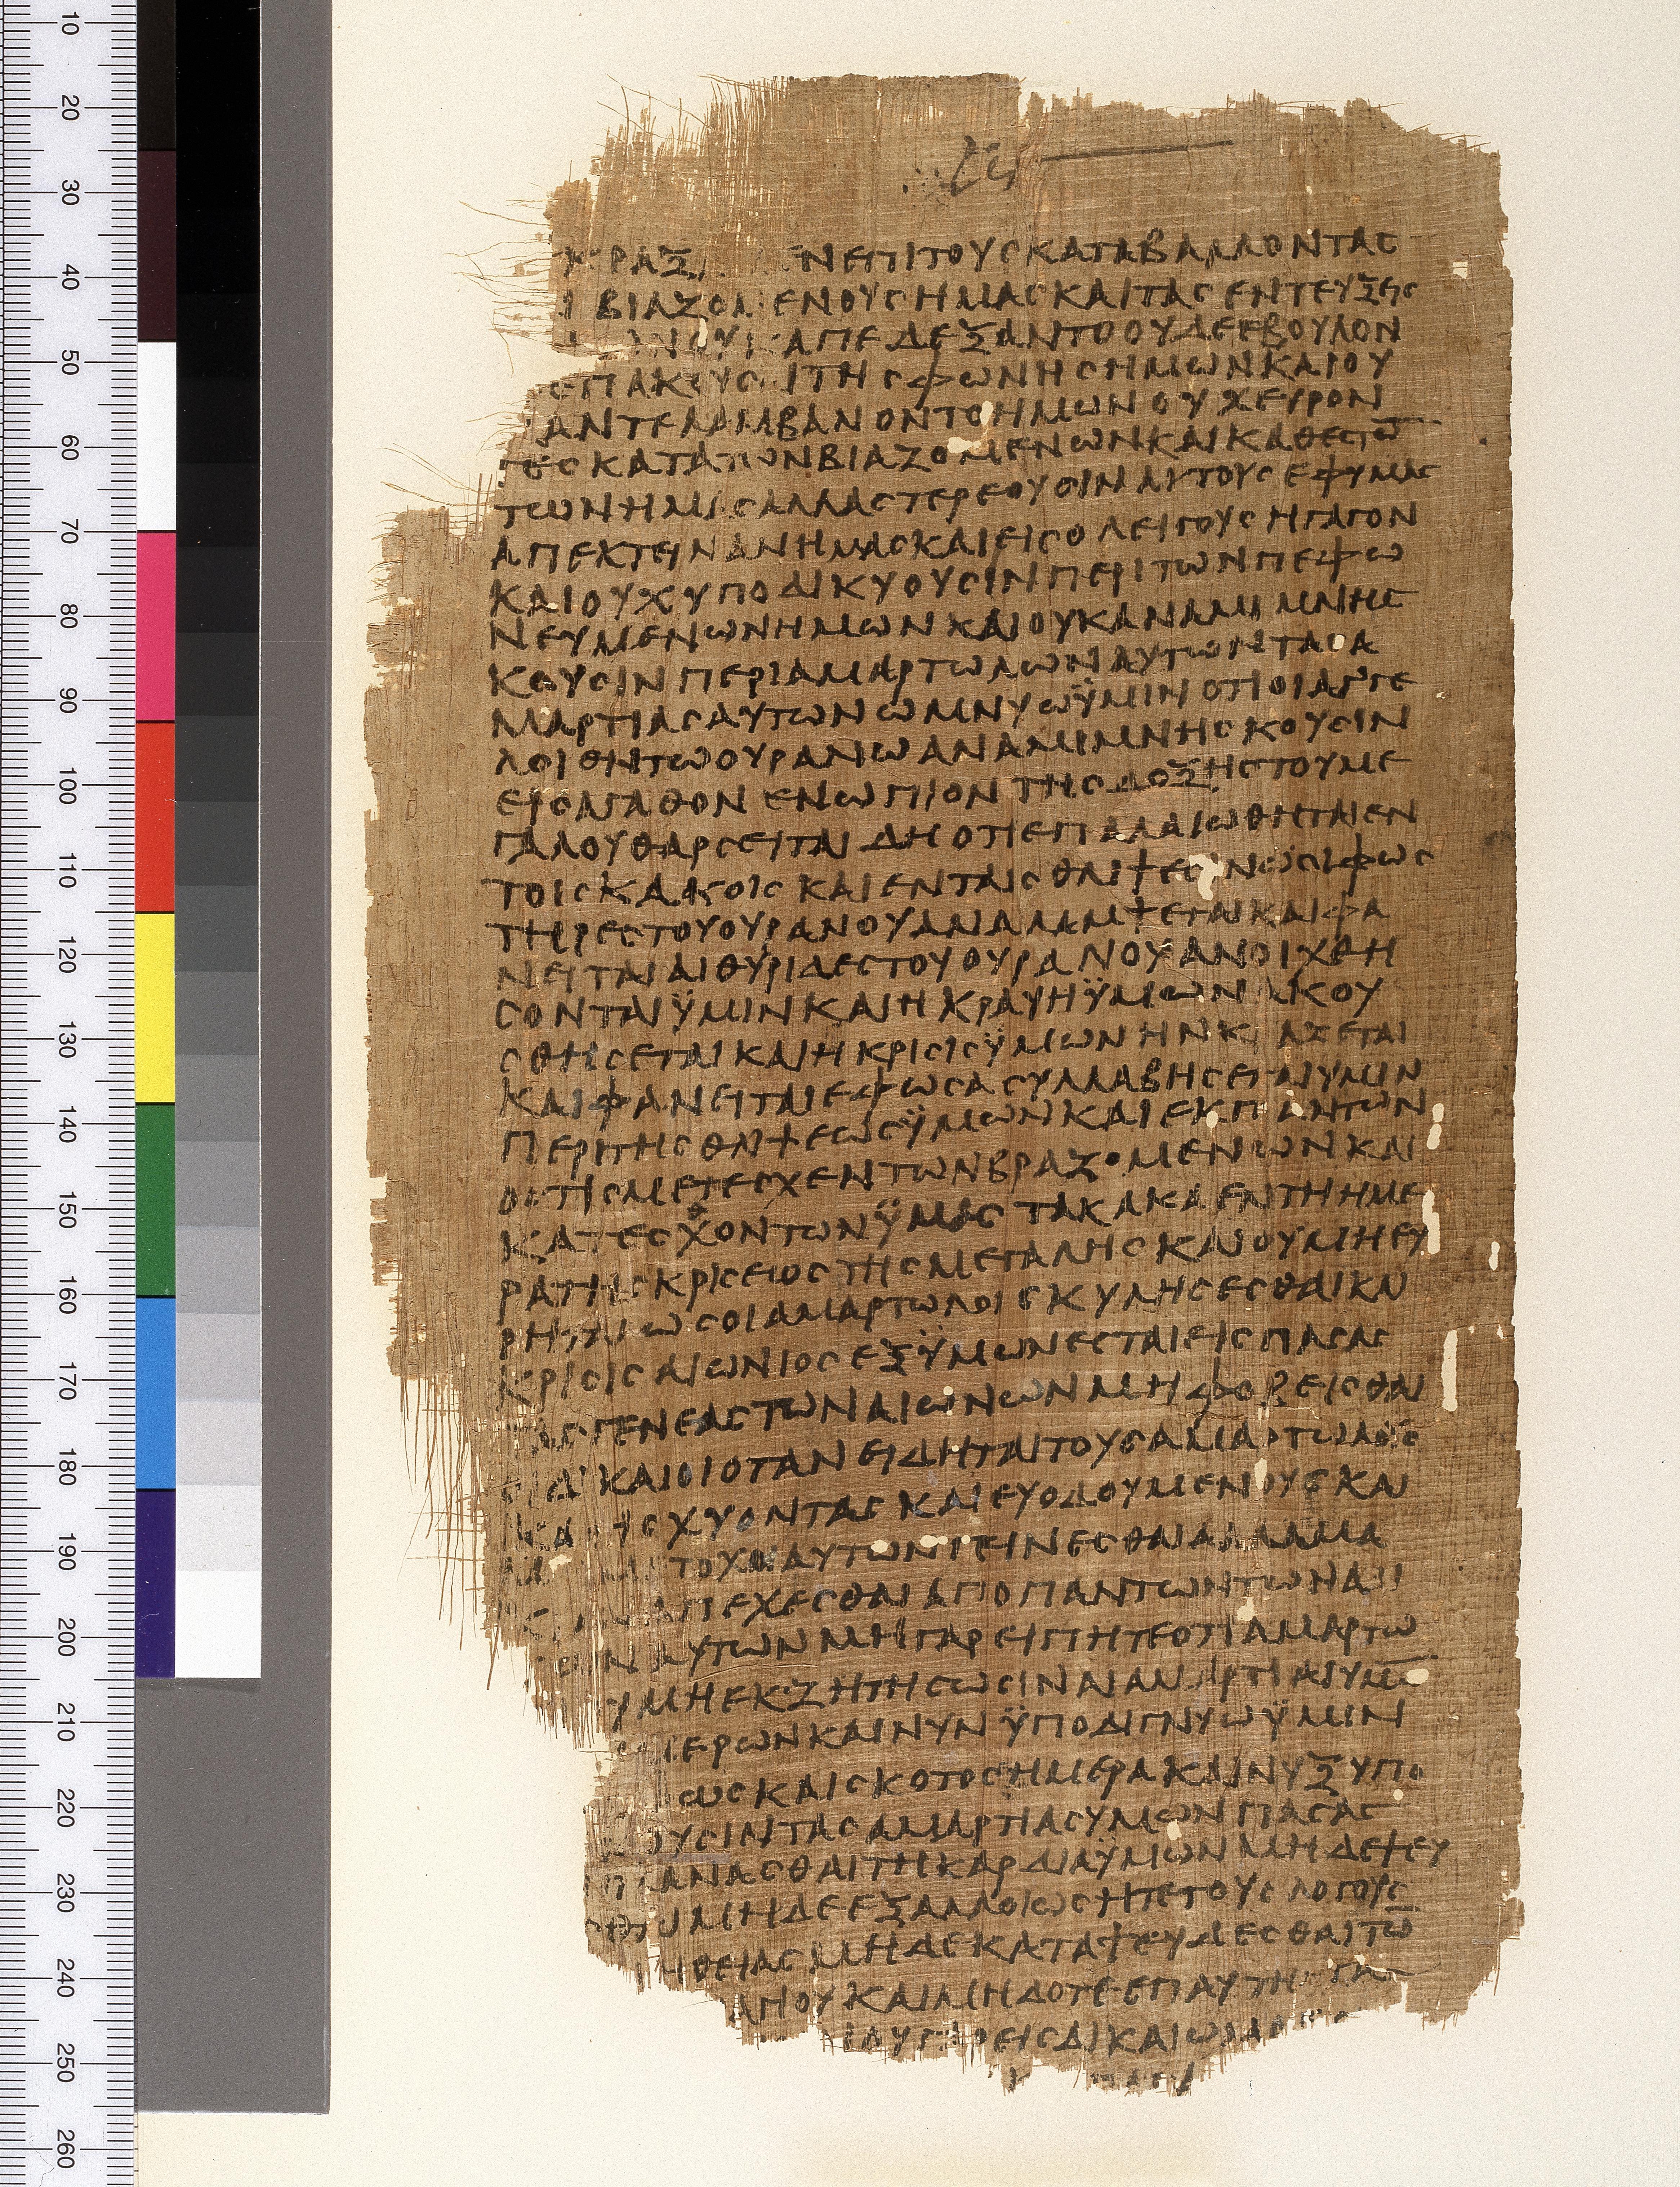 ΚΡΑΞ ΕΝΕΠΙΤΟΥϹΚΑΤΑΒΑΛΛΟΝΤΑϹ
ΒΙΑΖΟΜΕΝΟΥϹΗΜΑϹΚΑΙΤΑϹΕΝΤΕΥΞΕΙϹ
ΑΠΕΔΕΞΑΝΤΟΟΥΔΕΕΒΟΥΛΟΝ
ΕΠΑΚΟΥϹΑΙΤΗϹΦΩΝΗϹΗΜΩΝΚΑΙΟΥ
ΑΝΤΕΛΑΜΒΑΝΟΝΤΟΗΜΩΝΟΥΧΕΥΡΟΝ
ΤΕϹΚΑΤΑΤΩΝΒΙΑΖΟΜΕΝΩΝΚΑΙΚΑΘΕϹΤΩ̅
ΤΩΝΗΜΑϹΑΛΛΑϹΤΕΡΕΟΥϹΙΝΑΥΤΟΥϹΕΦΥΜΑϹ
ΑΠΕΚΤΕΙΝΑΝΗΜΑϹΚΑΙΕΙϹΟΛΕΙΓΟΥϹΗΓΑΓΟΝ
ΚΑΙΟΥΧΥΠΟΔΙΚΥΟΥϹΙΝΠΕΡΙΤΩΝΠΕΦΩ
ΝΕΥΜΕΝΩΝΗΜΩΝΚΑΙΟΥΚΑΝΑΜΙΜΝΗϹ
ΚΟΥϹΙΝΠΕΡΙΑΜΑΡΤΩΛΩΝΑΥΤΩΝΤΑϹΑ
ΜΑΡΤΙΑϹΑΥΤΩΝΩΜΝΥΩΫΜΙΝΟΤΙΟΙΑΓΓΕ
ΛΟΙΕΝΤΩΟΥΡΑΝΩΑΝΑΜΙΜΝΗϹΚΟΥϹΙΝ
ΕΙϹΑΓΑΘΟΝΕΝΩΠΙΟΝΤΗϹΔΟΞΗϹΤΟΥΜΕ
ΓΑΛΟΥΘΑΡϹΕΙΤΑΙΔΗΟΤΙΕΠΑΛΑΙΩΘΗΤΑΙΕΝ
ΤΟΙϹΚΑΚΟΙϹΚΑΙΕΝΤΑΙϹΘΛΙΨΕϹΙΝΩϹΙΦΩϹ
ΤΗΡΕϹΤΟΥΟΥΡΑΝΟΥΑΝΑΛΑΜΨΕΤΑΙΚΑΙΦΑ
ΝΕΙΤΑΙΑΙΘΥΡΙΔΕϹΤΟΥΟΥΡΑΝΟΥΑΝΟΙΧΘΗ
ϹΟΝΤΑΙΫΜΙΝΚΑΙΗΚΡΑΥΗΫΜΩΝΑΚΟΥ
ϹΘΗϹΕΤΑΙΚΑΙΗΚΡΙϹΙϹΫΜΩΝΗΝΚΡΑΞΕΤΑΙ
ΚΑΙΦΑΝΕΙΤΑΙΕΦΩϹΑϹΥΛΛΑΒΗϹΕΤΑΙΥΜΙΝ
ΠΕΡΙΤΗϹΘΛΙΨΕΩϹΫΜΩΝΚΑΙΕΚΠΑΝΤΩΝ
ΟϹΤΙϹΜΕΤΕϹΧΕΝΤΩΝΒΡΑΖΟΜΕΝΩΝΚΑΙ
ΚΑΤΕϹΧΟΝΤΩΝΫΜΑϹΤΑΚΑΚΑΕΝΤΗΗΜΕ
ΡΑΤΗϹΚΡΙϹΕΙΟϹΤΗϹΜΕΓΑΛΗϹΚΑΙΟΥΜΗΕΥ
ΡΗΤΑΙΩϹΟΙΑΜΑΡΤΩΛΟΙϹΚΥΛΗϹΕϹΘΑΙΚΑΙ
ΚΡΙϹΙϹΑΙΩΝΙΟϹΕΞΫΜΩΝΕϹΤΑΙΕΙϹΠΑϹΑϹ
ΤΑϹΓΕΝΕΑϹΤΩΝΑΙΩΝΩΝΜΗΦΟΒΕΙϹΘΑΙ
ΟΙΔΙΚΑΙΟΙΟΤΑΝΕΙΔΗΤΑΙΤΟΥϹΑΜΑΡΤΩΛΟΥϹ
ΚΑΤΙϹΧΥΟΝΤΑϹΚΑΙΕΥΟΔΟΥΜΕΝΟΥϹΚΑΙ
ΤΟΧΟΙΑΥΤΩΝΓΕΙΝΕϹΘΑΙΑΛΛΑΜΑ
ΑΠΕΧΕϹΘΑΙΑΠΟΠΑΝΤΩΝΤΩΝΑΔΙ
ΑΥΤΩΝΜΗΓΑΡΕΙΠΗΤΕΟΤΙΑΜΑΡΤΩ
ΥΜΗΕΚΖΗΤΗϹΩϹΙΝΑΙΑΜΑΡΤΙΑΙΥΜΩ̅
ΜΕΡΩΝΚΑΙΝΥΝΫΠΟΔΙΓΝΥΩΫΜΙΝ
ΩϹΚΑΙϹΚΟΤΟϹΗΜΕΡΑΚΑΙΝΥΞΥΠΟ
ΟΥϹΙΝΤΑϹΑΜΑΡΤΙΑϹΥΜΩΝΠΑϹΑϹ
ΠΛΑΝΑϹΘΑΙΤΗΚΑΡΔΙΑΫΜΩΝΜΗΔΕΨΕΥ
ΜΗΔΕΕΞΑΛΛΟΙΩϹΗΤΕΤΟΥϹΛΟΓΟΥϹ
ΗΘΕΙΑϹΜΗΔΕΚΑΤΑΨΕΥΔΕϹΘΑΙΤΩ̅
ΓΙΟΥΚΑΙΜΗΔΟΤΕΕΠΑΥΤΗ
ΕΙϹΔΙΚΑΙΩΜΑ